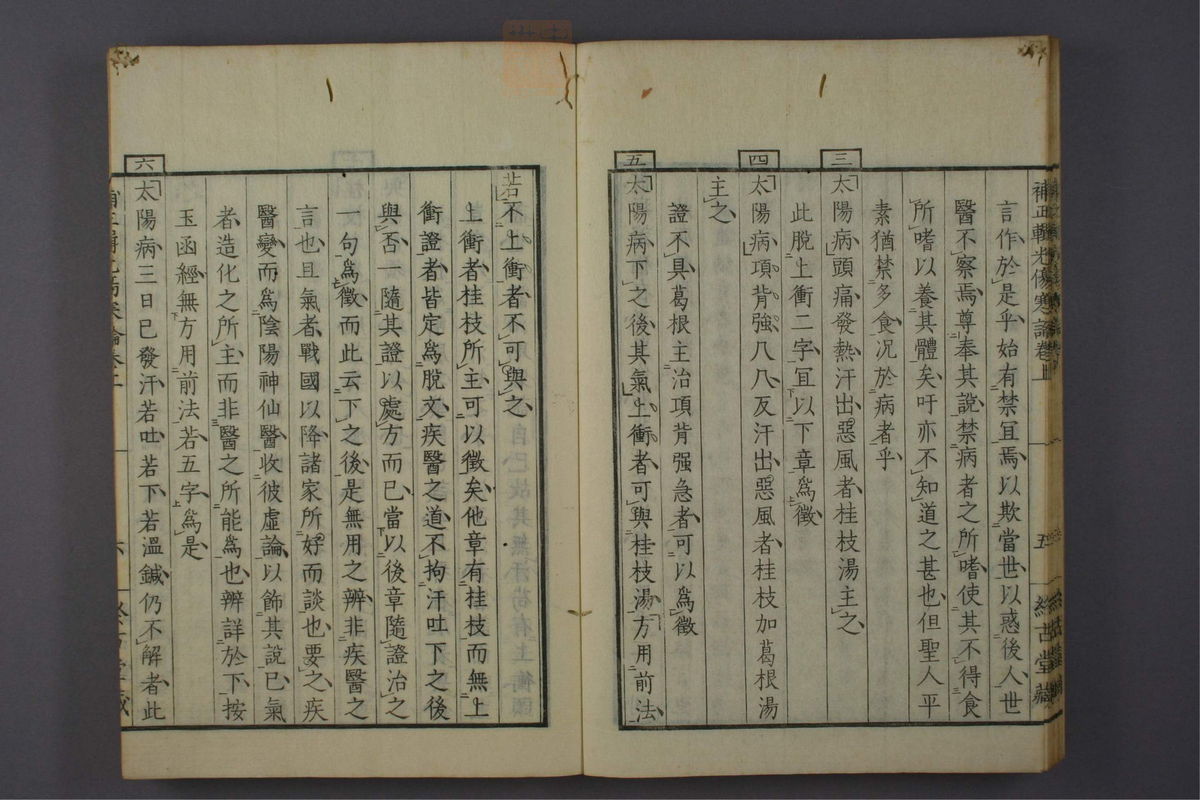 言作於是乎始有禁冝焉以欺當世以惑後人世
醫不察焉尊奉其說禁病者之所嗜使其不得食
所嗜以養其體矣吁亦不知道之甚也但聖人平
素猶禁多食况於病者乎
三
太陽病頭痛發熱汗出惡風者桂枝湯主之
此脫上衝二字冝以下章爲徵
四
太陽病項背強八八反汗出惡風者桂枝加葛根湯
主之
證不具葛根主治項背强急者可以爲徵
五
太陽病下之後其氣上衝者可與桂枝湯方用前法
若不上衝者不可與之
上衝者桂枝所主可以徵矣他章有桂枝而無上
衝證者皆定爲脫文疾醫之道不拘汗吐下之後
與否一隨其證以處方而已當以後章隨證治之
一句爲徵而此云下之後是無用之辨非疾醫之
言也且氣者戰國以降諸家所好而談也要之疾
醫變而爲陰陽神仙醫收彼虛論以飾其說已氣
者造化之所主而非醫之所能爲也辨詳於下按
玉函經無方用前法若五字爲是
六
太陽病三日已發汗若吐若下若溫鍼仍不解者此